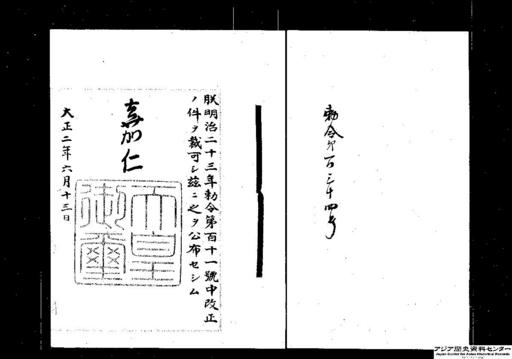 勅令第百三十四号
朕明治二十三年勅令第百十一號中改正
ノ件ヲ裁可シ茲ニ之ヲ公布セシム
嘉仁
天皇
御璽
大正二年六月十三日
アジア歴史資料センター
Japan Center for Asian Historical Records